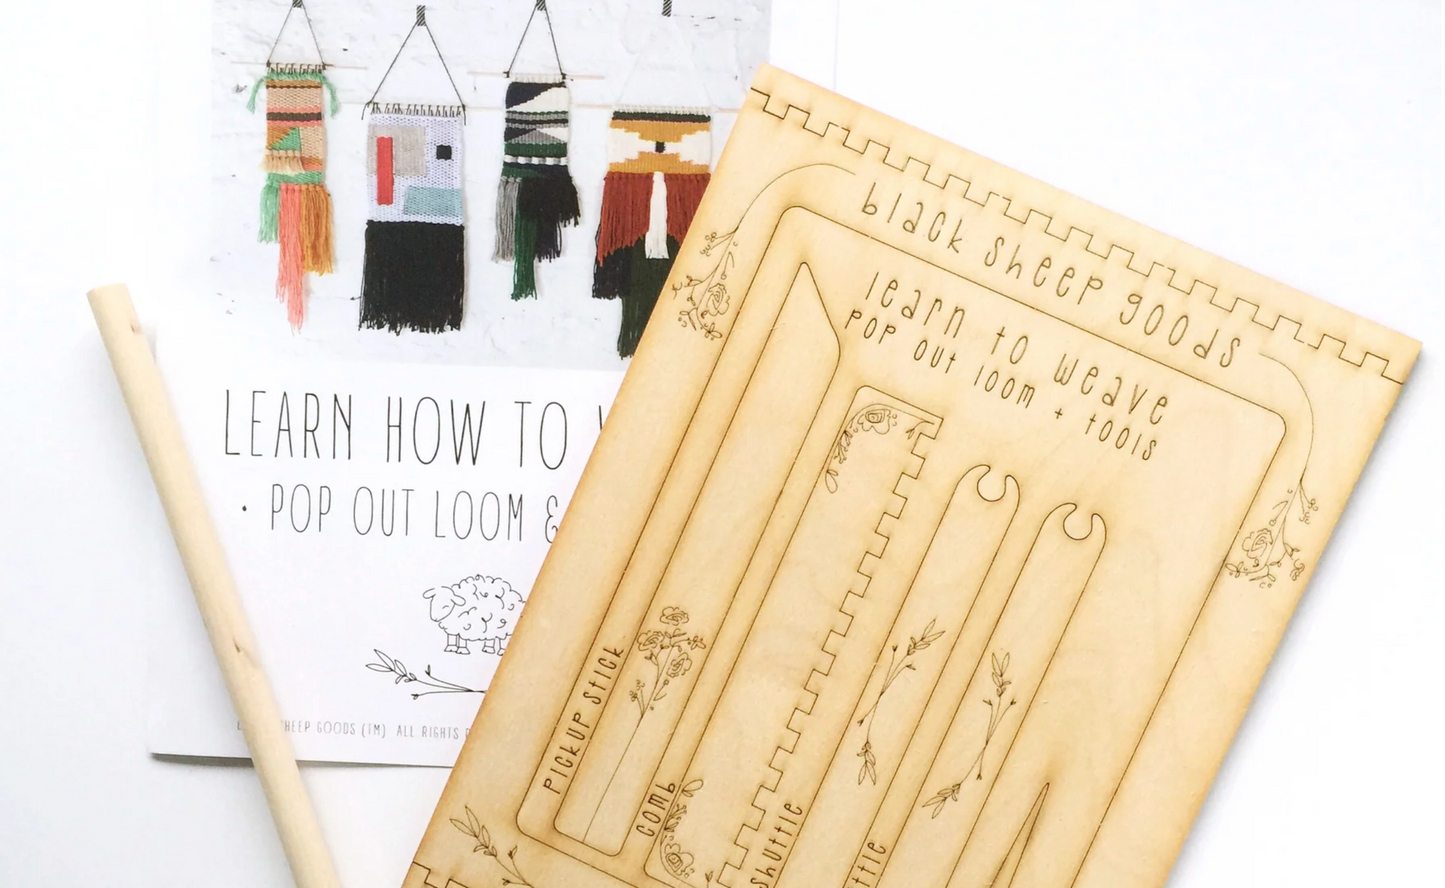 LEARN HOW TO
• POP OUT LOOM &
SHEEP GOODS (TM) ALL RIGHTS
black sheep goods
learn to weave
POP OUT LOOM + TOOLS
PICKUP STICK
COMB
SHUTTLE
TTLE